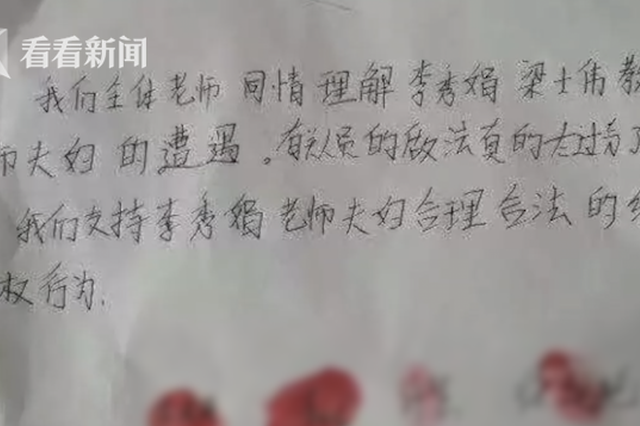 看看新闻
我们全体老师同情理解李秀娟梁士伟教
师夫妇的遭遇。有关人员的做法真的太过分了
我们支持李秀娟老师夫妇合理合法的维
权行为.